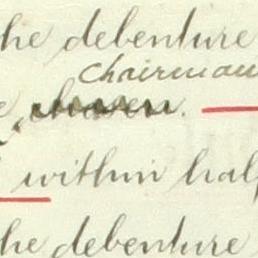 he debenture
Chairman
e
within half
he debenture